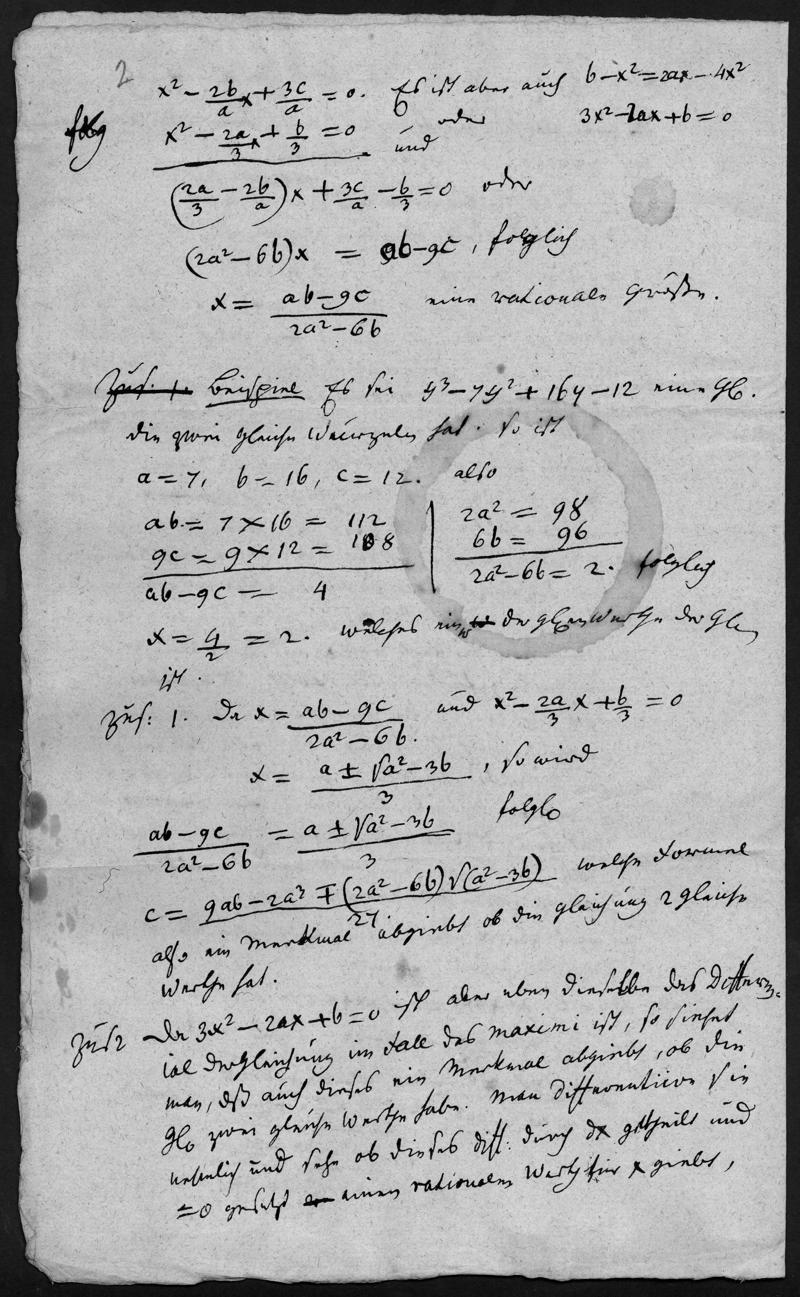 2
x² − 2b/a x + 3c/a = 0. Es ist aber auch b − x² = 2ax − 4x²
folg x² − 2a/3 x + b/3 = 0 und oder 3x² − 2ax + b = 0
(2a/3 − 2b/a) x + 3c/a − b/3 = 0 oder
(2a² − 6b) x = ab − 9c, folglich
x = ab − 9c / 2a² − 6b eine rationale Größe.
Zus. 1. Beispiel Es sei y³ − 7y² + 16y − 12 eine Gl.
die zwei gleiche Wurzeln hat. so ist
a = 7, b = 16, c = 12. also
ab = 7 × 16 = 112 | 2a² = 98
9c = 9 × 12 = 108 | 6b = 96
ab − 9c = 4 | 2a² − 6b = 2. folglich
x = 4/2 = 2. welches einer der gleichen Werthe der Gl
ist.
Zus: 1. Da x = ab − 9c / 2a² − 6b. und x² − 2a/3 x + b/3 = 0
x = a ± √a² − 3b / 3, so wird
ab − 9c / 2a² − 6b = a ± √a² − 3b / 3 folgl
c = 9ab − 2a³ ∓ (2a² − 6b) √(a² − 3b) / 27 welche Formul
also ein Merkmal abgiebt ob die gleichung 2 gleiche
Werthe hat.
Zus 2 Da 3x² − 2ax + b = 0 ist aber eben dieselbe das Differen-
tial der Gleichung im Fall des maximi ist, so siehet
man, dß auch dieses ein Merkmal abgiebt, ob die
Gl zwei gleiche Werthe habe. Man differentiire sie
nehmlich und sehe ob dieses diff: durch dx getheilt und
= 0 gesetzt einen rationalen Werth für x giebt,